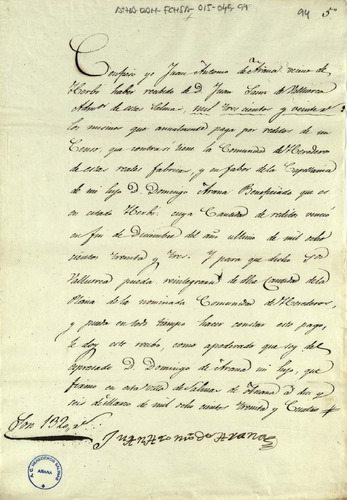 ATHA-DAH-FCHSA-015-049-94
94 5º
Confieso yo Juan Antonio de Arana vecino de
haber recibido de D. Juan
Admor de estas Salinas, mil trescientos y veinte rs
los mismos que anualmente paga por reditos de un
Censo, que contra si tiene la Comunidad de Herederos
de estas reales fabricas, y en favor de la Capellania
de mi hijo D. Domingo Arana Beneficiado que es
en estado cuya Cantidad de reditos vencio
en fin de Diciembre del año ultimo de mil ocho
cientos treinta y tres. Y para que dicho Sor
Valluerca pueda reintegrarse de dha Cantidad de la
de la nominada Comunidad de Herederos,
y pueda en todo tiempo hacer constar este pago,
le doy este recibo, como apoderado que soy del
expresado D. Domingo de Arana mi hijo, que
firmo en esta villa de Salinas de Añana á diez y
seis de Marzo de mil ocho cientos treinta y Cuatro
Son 1320 rs
Juan Antonio de Arana
AÑANA